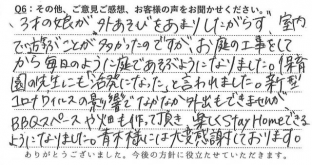 Q6：その他、ご意見ご感想、お客様の声をお聞かせください。
3才の娘が、外あそびをあまりしたがらず、室内
で遊ぶことが多かったのですが、お庭の工事をして
から毎日のように庭であそぶようになりました。保育
園の先生にも「活発になった」と言われました。新型
コロナウィルスの影響でなかなか外出もできませんが、
BBQスペースや畑も作って頂き、楽しくStay Homeできる
ようになりました。青木様には大変感謝しております。
ありがとうございました。今後の方針に役立たせていただきます。